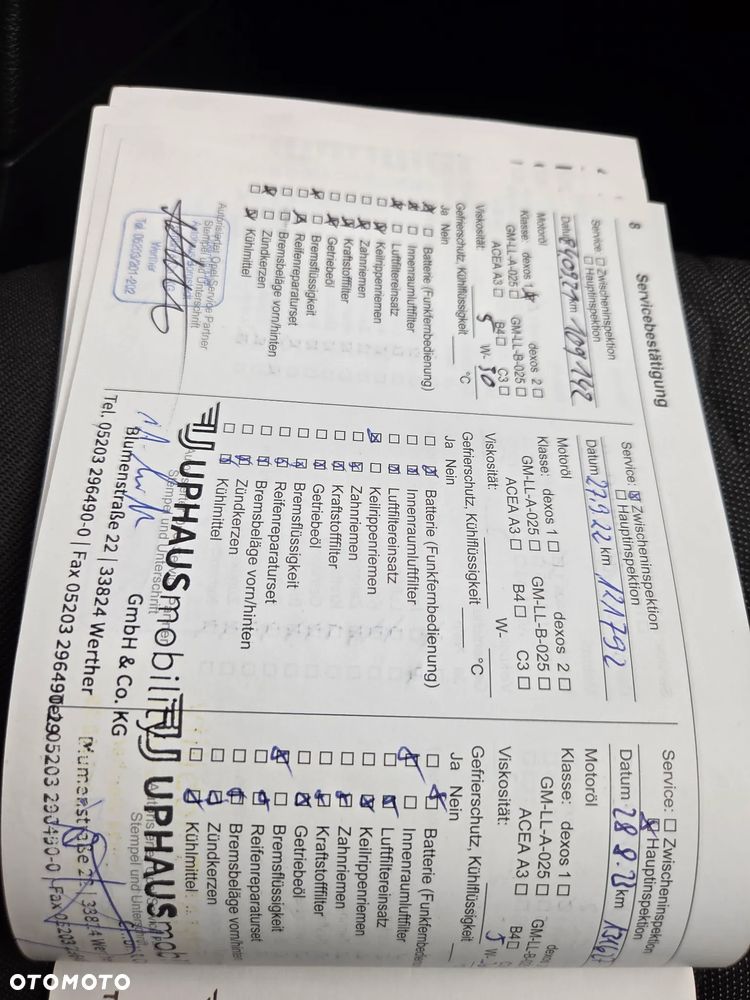 8
Servicebestätigung
Service: □ Zwischeninspektion
□ Hauptinspektion
Datum km 109 142
Motoröl
Klasse: dexos 1 dexos 2 □
GM-LL-A-025 □ GM-LL-B-025 □
ACEA A3 □ B4 □ C3 □
Viskosität: 5 W- 30
Gefrierschutz, Kühlflüssigkeit °C
Ja Nein
Batterie (Funkfernbedienung)
Innenraumluftfilter
Luftfiltereinsatz
Keilrippenriemen
Zahnriemen
Kraftstofffilter
Getriebeöl
Bremsflüssigkeit
Reifenreparaturset
Bremsbeläge vorn/hinten
Zündkerzen
Kühlmittel
Autorisierter Opel Service Partner
Stempel und Unterschrift
Werther
Tel. 05203/201-202
Service: ☒ Zwischeninspektion
□ Hauptinspektion
Datum 27.9.22 km 121792
Motoröl
Klasse: dexos 1 □ dexos 2 □
GM-LL-A-025 □ GM-LL-B-025 □
ACEA A3 □ B4 □ C3 □
Viskosität: W-
Gefrierschutz, Kühlflüssigkeit °C
Ja Nein
Batterie (Funkfernbedienung)
Innenraumluftfilter
Luftfiltereinsatz
Keilrippenriemen
Zahnriemen
Kraftstofffilter
Getriebeöl
Bremsflüssigkeit
Reifenreparaturset
Bremsbeläge vorn/hinten
Zündkerzen
Kühlmittel
Stempel und Unterschrift
UPHAUSmobility
GmbH & Co. KG
Blumenstraße 22 | 33824 Werther
Tel. 05203 296490-0 | Fax 05203 296490-29
Service: □ Zwischeninspektion
☒ Hauptinspektion
Datum 28.8.23 km
Motoröl
Klasse: dexos 1 □
GM-LL-A-025 □
ACEA A3 □ B4 □
Viskosität: 5 W-
Gefrierschutz, Kühlflüssigkeit
Ja Nein
Batterie (Funkfernbedien
Innenraumluftfilter
Luftfiltereinsatz
Keilrippenriemen
Zahnriemen
Kraftstofffilter
Getriebeöl
Bremsflüssigkeit
Reifenreparaturset
Bremsbeläge vorn/hinten
Zündkerzen
Kühlmittel
Stempel und Unterschrift
UPHAUSmob
Blumenstraße 22 | 33824 We
05203 296490-0 | Fax 05203
OTOMOTO